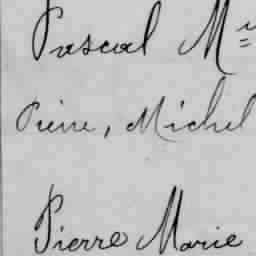 Pascal M
Pierre, Michel
Pierre Marie